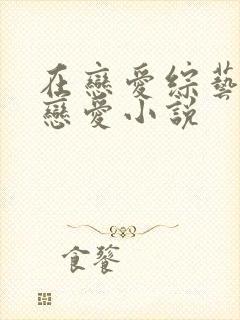 在戀愛綜藝
戀愛小說
食